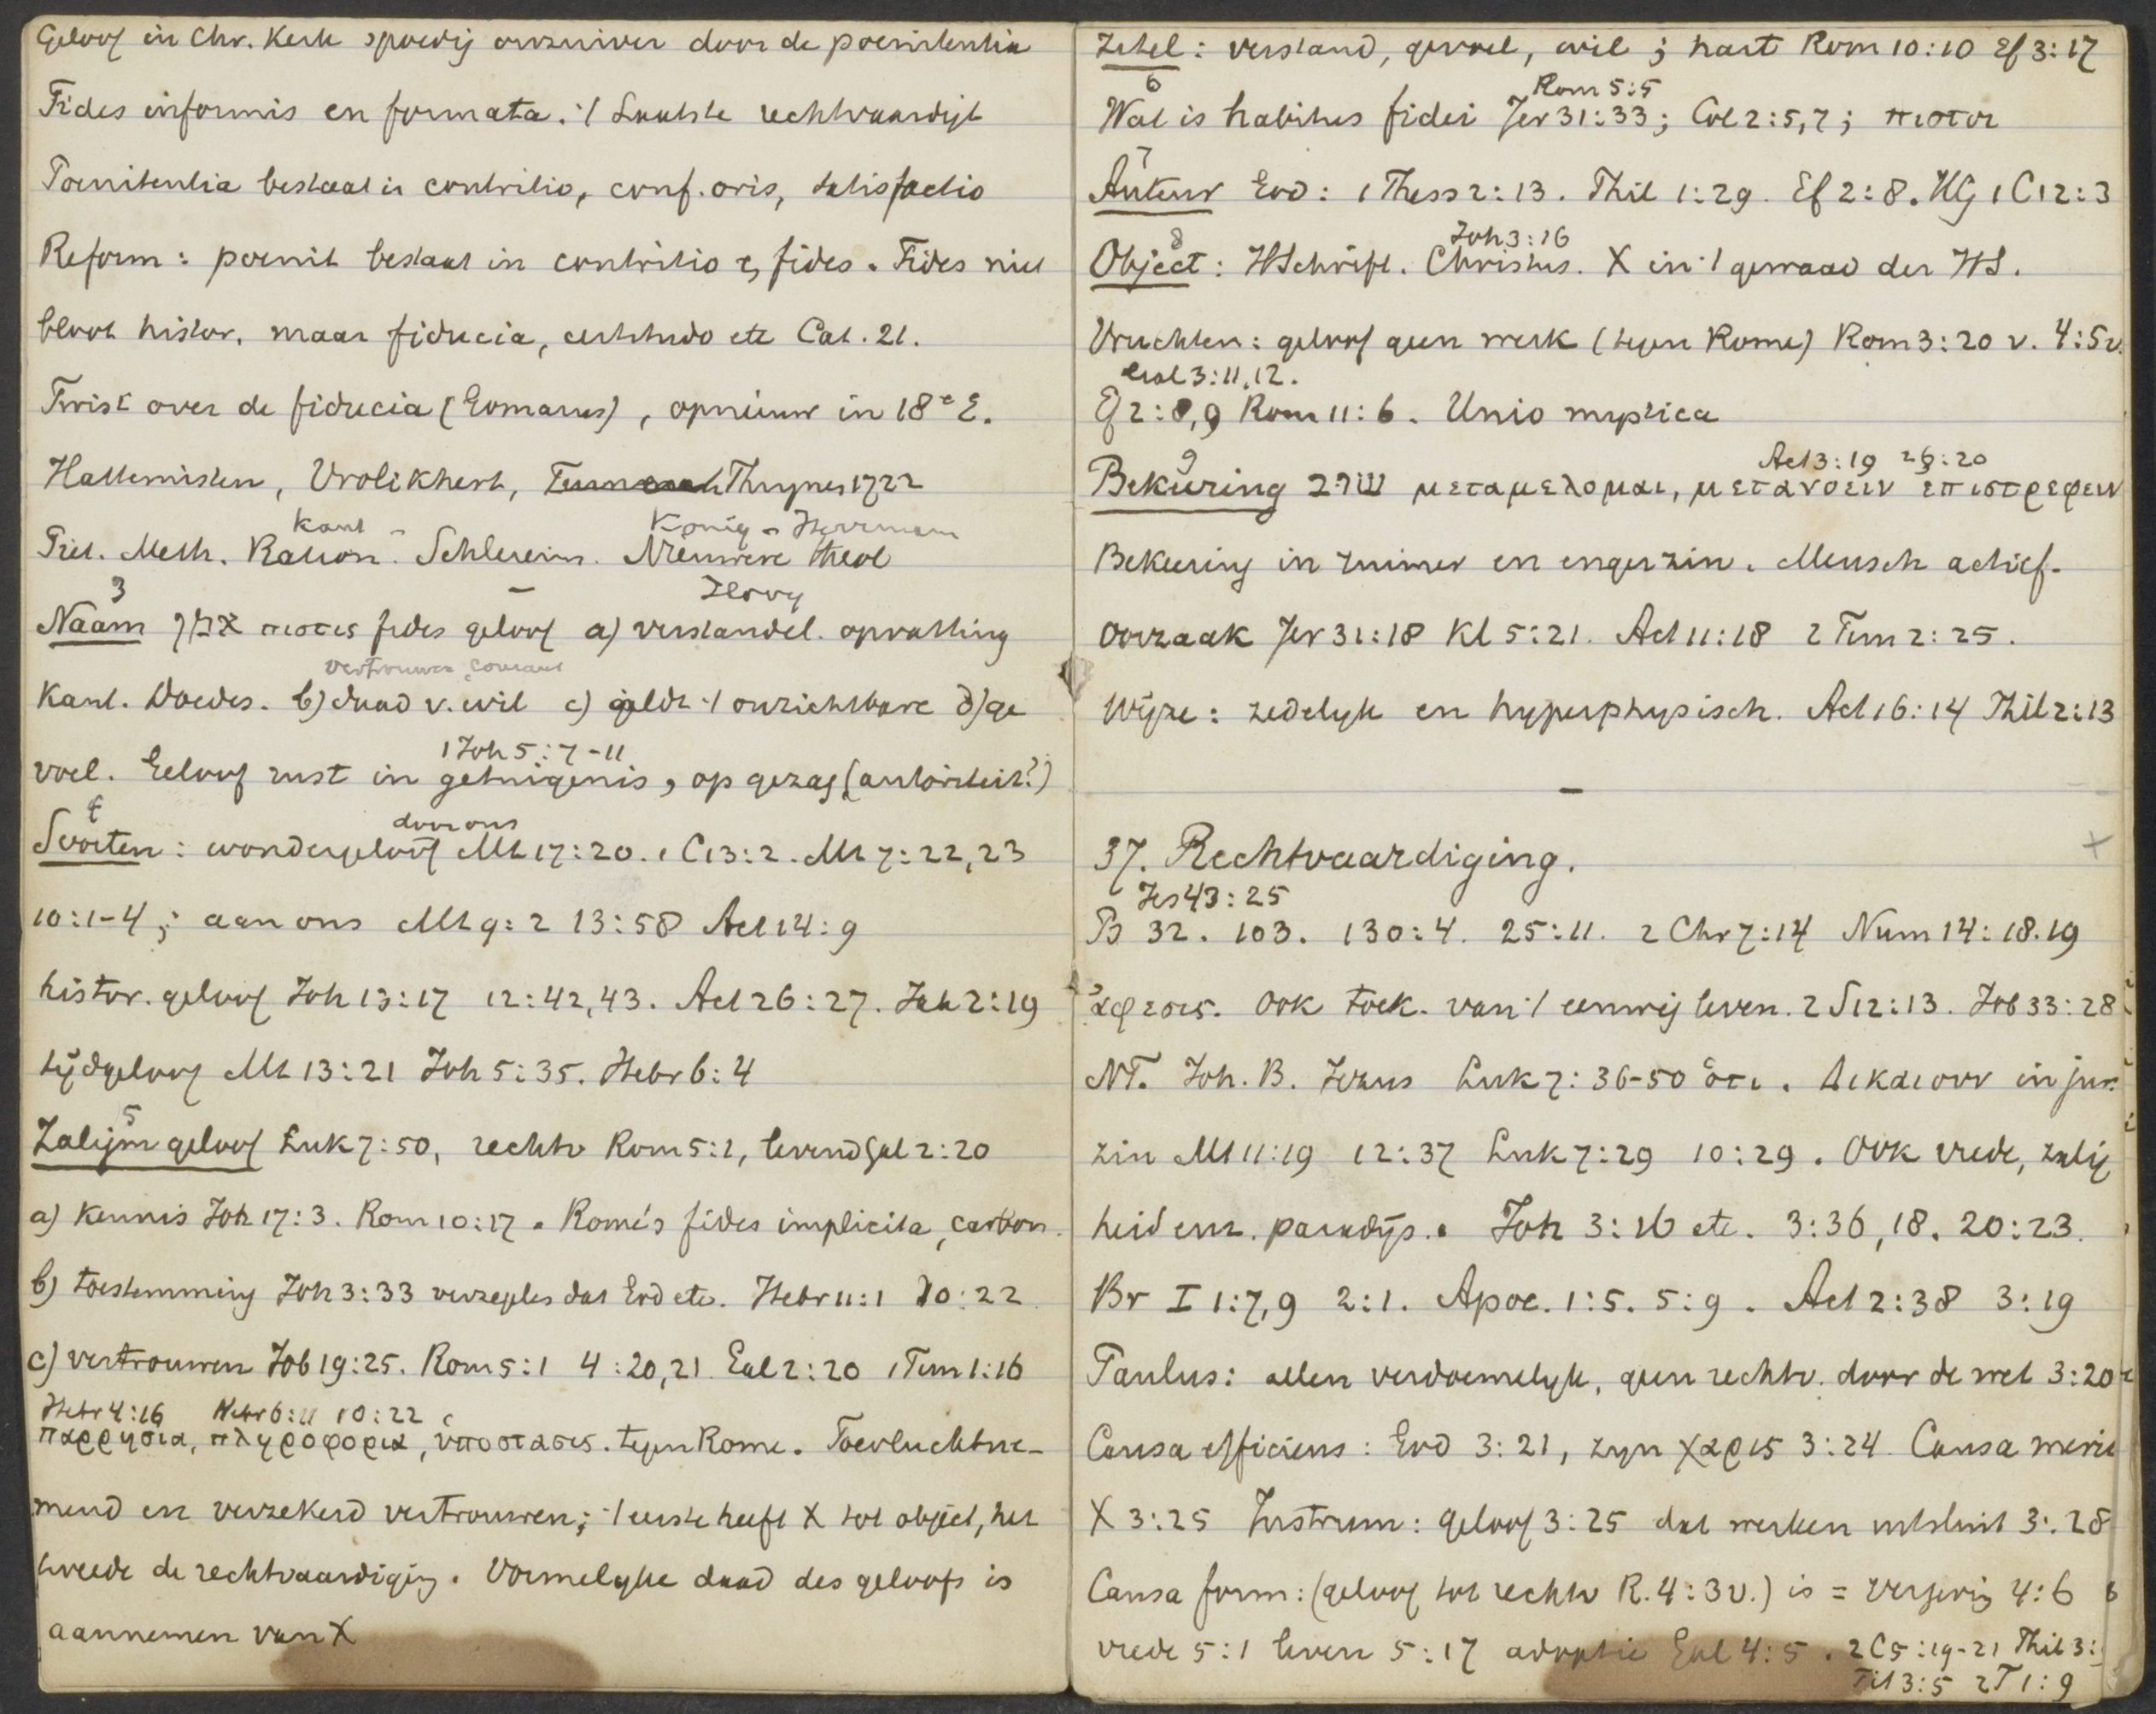 Geloof in Chr. Kerk spoedig onzuiver door de poenitentia
Fides informis en formata. ·/· Laatste rechtvaardigt
Poenitentia bestaat in contritio, conf. oris, satisfactio
Reform: poenit bestaat in contritio &, fides. Fides niet
bloot histor. maar fiducia, certitudo etc Cat. 21.
Twist over de fiducia (Gomarus), opnieuw in 18e E.
Hattemisten, Vrolikhert, Theod. Thuynen 1722
Kant König - Herrmann
Piet. Meth. Ration. Schleierm. Nieuwere theol
3 Ilovy
Naam אמן πιστις fides geloof a) verstandel. opvatting
vertrouwen
Kant. Doedes. b) daad v. wil c) geldt ·/· onzichtbare d) ge
1 Joh 5:7-11
voel. Geloof rust in getuigenis, op gezag (autoriteit?)
4 door ons
Soorten: wondergeloof Mt 17:20. 1 C 13:2. Mt 7:22,23
10:1-4; aan ons Mt 9:2 13:58 Act 14:9
histor. geloof Joh 13:17 12:42,43. Act 26:27. Jak 2:19
tijdgeloof Mt 13:21 Joh 5:35. Hebr 6:4
5
Zaligm geloof Luk 7:50, rechtv Rom 5:1, levend Gal 2:20
a) Kennis Joh 17:3. Rom 10:17. Rome's fides implicita, carbon.
b) toestemming Joh 3:33 verzegles dat God etc. Hebr 11:1 10:22
c) vertrouwen Job 19:25. Rom 5:1 4:20,21 Gal 2:20 1 Tim 1:16
Hebr 4:16 Hebr 6:11 10:22
παρρησια, πληροφορια, ὑποστασις. tegen Rome. Toevluchtne-
mend en verzekerd vertrouwen; ·/· eerste heeft X tot object, het
tweede de rechtvaardiging. Vormelyke daad des geloofs is
aannemen van X
Zetel: verstand, gevoel, wil; hart Rom 10:10 Ef 3:17
6 Rom 5:5
Wat is habitus fidei Jer 31:33; Col 2:5,7; πιστοι
7
Auteur God: 1 Thess 2:13. Phil 1:29. Ef 2:8. HG 1 C 12:3
8 Joh 3:16
Object: HSchrift. Christus. X in ·/· gewaad der HS.
Vruchten: geloof geen werk (tegen Rome) Rom 3:20 v. 4:5 v.
Gal 3:11,12.
Ef 2:8,9 Rom 11:6. Unio mystica
9 Act 3:19 26:20
Bekeering שוב μεταμελομαι, μετανοειν επιστρεφειν
Bekeering in ruimer en enger zin. Mensch actief.
Oorzaak Jer 31:18 Kl 5:21. Act 11:18 2 Tim 2:25.
Wijze: zedelyk en hyperphysisch. Act 16:14 Phil 2:13
37. Rechtvaardiging.
Jes 43:25
Ps 32. 103. 130:4. 25:11. 2 Chr 7:14 Num 14:18.19
ἀφεσις. Ook toek. van ·/· eeuwig leven. 2 S 12:13. Job 33:28
NT. Joh. B. Jezus Luk 7:36-50 ὁτι. Δικαιουν in jur.
zin Mt 11:19 12:37 Luk 7:29 10:29. Ook vrede, zalig
heid enz. paradijs. Joh 3:16 etc. 3:36,18. 20:23.
Br I 1:7,9 2:1. Apoc. 1:5. 5:9. Act 2:38 3:19
Paulus: allen verdoemelyk, geen rechtv. door de wet 3:20
Causa efficiens: God 3:21, zyn χαρις 3:24. Causa merit
X 3:25 Instrum: geloof 3:25 dat werken uitsluit 3:28
Causa form: (geloof tot rechtv R. 4:3 v.) is = vergevig 4:6
vrede 5:1 leven 5:17 adoptie Gal 4:5. 2 C 5:19-21 Phil 3:
Tit 3:5 2 T 1:9